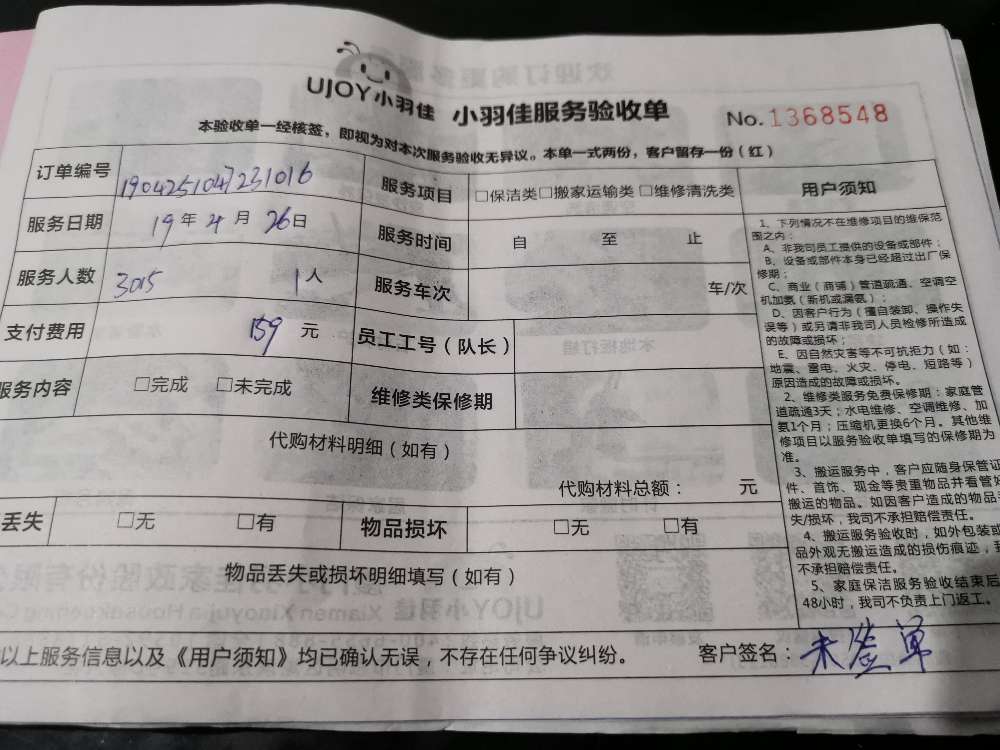 UJOY小羽佳 小羽佳服务验收单 No.1368548
本验收单一经核签，即视为对本次服务验收无异议。本单一式两份，客户留存一份（红）
订单编号 1904251047231016 服务项目 □保洁类□搬家运输类□维修清洗类
服务日期 19年4月26日 服务时间 自 至 止
服务人数 3015 1人 服务车次 车/次
支付费用 159 元 员工工号（队长）
服务内容 □完成 □未完成 维修类保修期
代购材料明细（如有）
代购材料总额： 元
丢失 □无 □有 物品损坏 □无 □有
物品丢失或损坏明细填写（如有）
以上服务信息以及《用户须知》均已确认无误，不存在任何争议纠纷。 客户签名：未签单
用户须知
1、下列情况不在维修项目的维保范
围之内：
A、非我司员工提供的设备或部件；
B、设备或部件本身已经超过出厂保
修期；
C、商业（商铺）管道疏通、空调空
机加氨（新机或漏氨）；
D、因客户行为（擅自装卸、操作失
误等）或另请非我司人员检修所造成
的故障或损坏；
E、因自然灾害等不可抗拒力（如：
地震、雷电、火灾、停电、短路等）
原因造成的故障或损坏。
2、维修类服务免费保修期：家庭管
道疏通3天；水电维修、空调维修、加
氨1个月；压缩机更换6个月。其他维
修项目以服务验收单填写的保修期为
准。
3、搬运服务中，客户应随身保管证
件、首饰、现金等贵重物品并看管好
搬运的物品。如因客户造成的物品
失/损坏，我司不承担赔偿责任。
4、搬运服务验收时，如外包装或
品外观无搬运造成的损伤痕迹，我
不承担赔偿责任。
5、家庭保洁服务验收结束后
48小时，我司不负责上门返工。